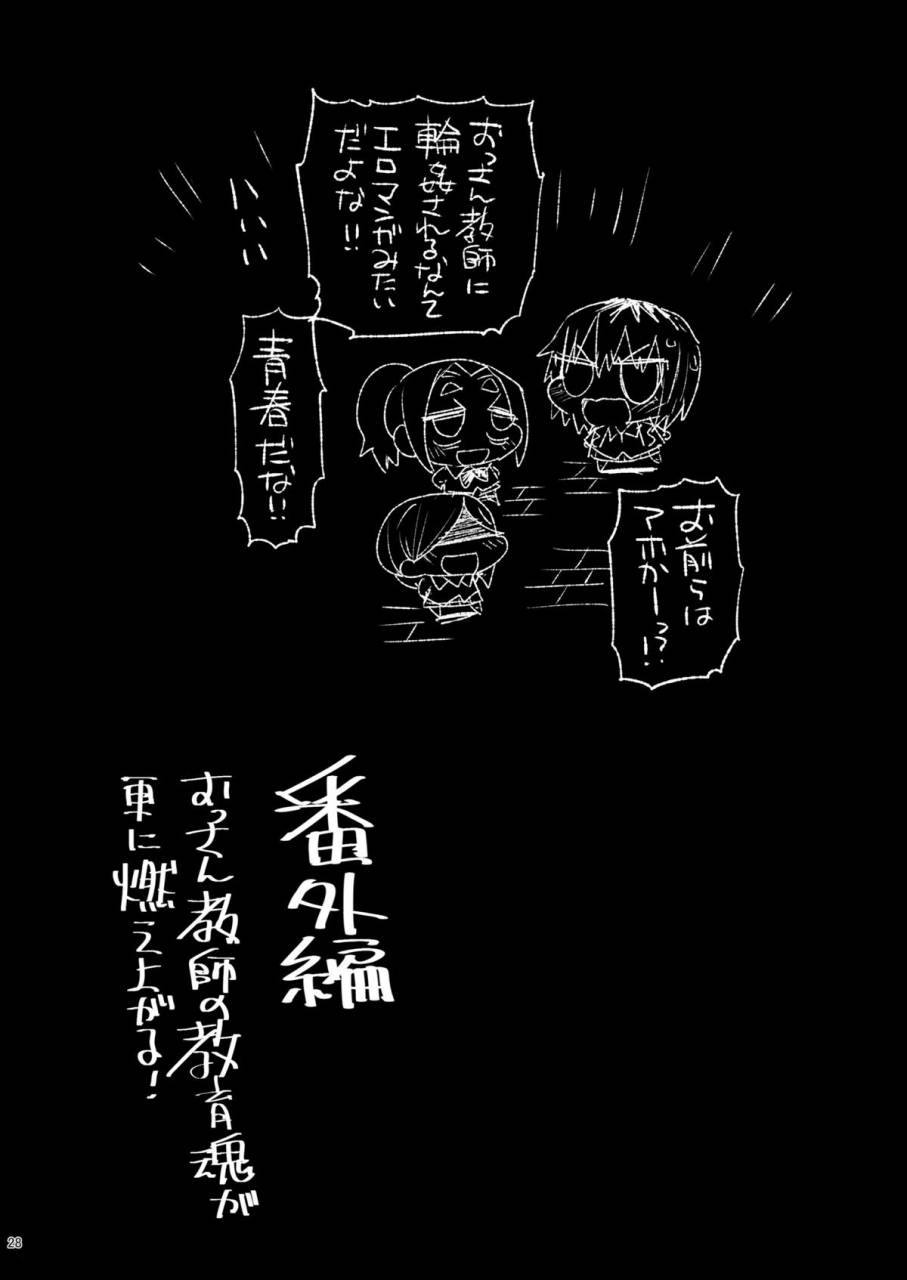 おっさん教師に
輪姦されるなんて
エロマンガみたい
だよな!!
いいい
青春だな!!
お前らは
アホかーっ!?
番外編
おっさん教師の教育魂が
更に燃え上がる!
28